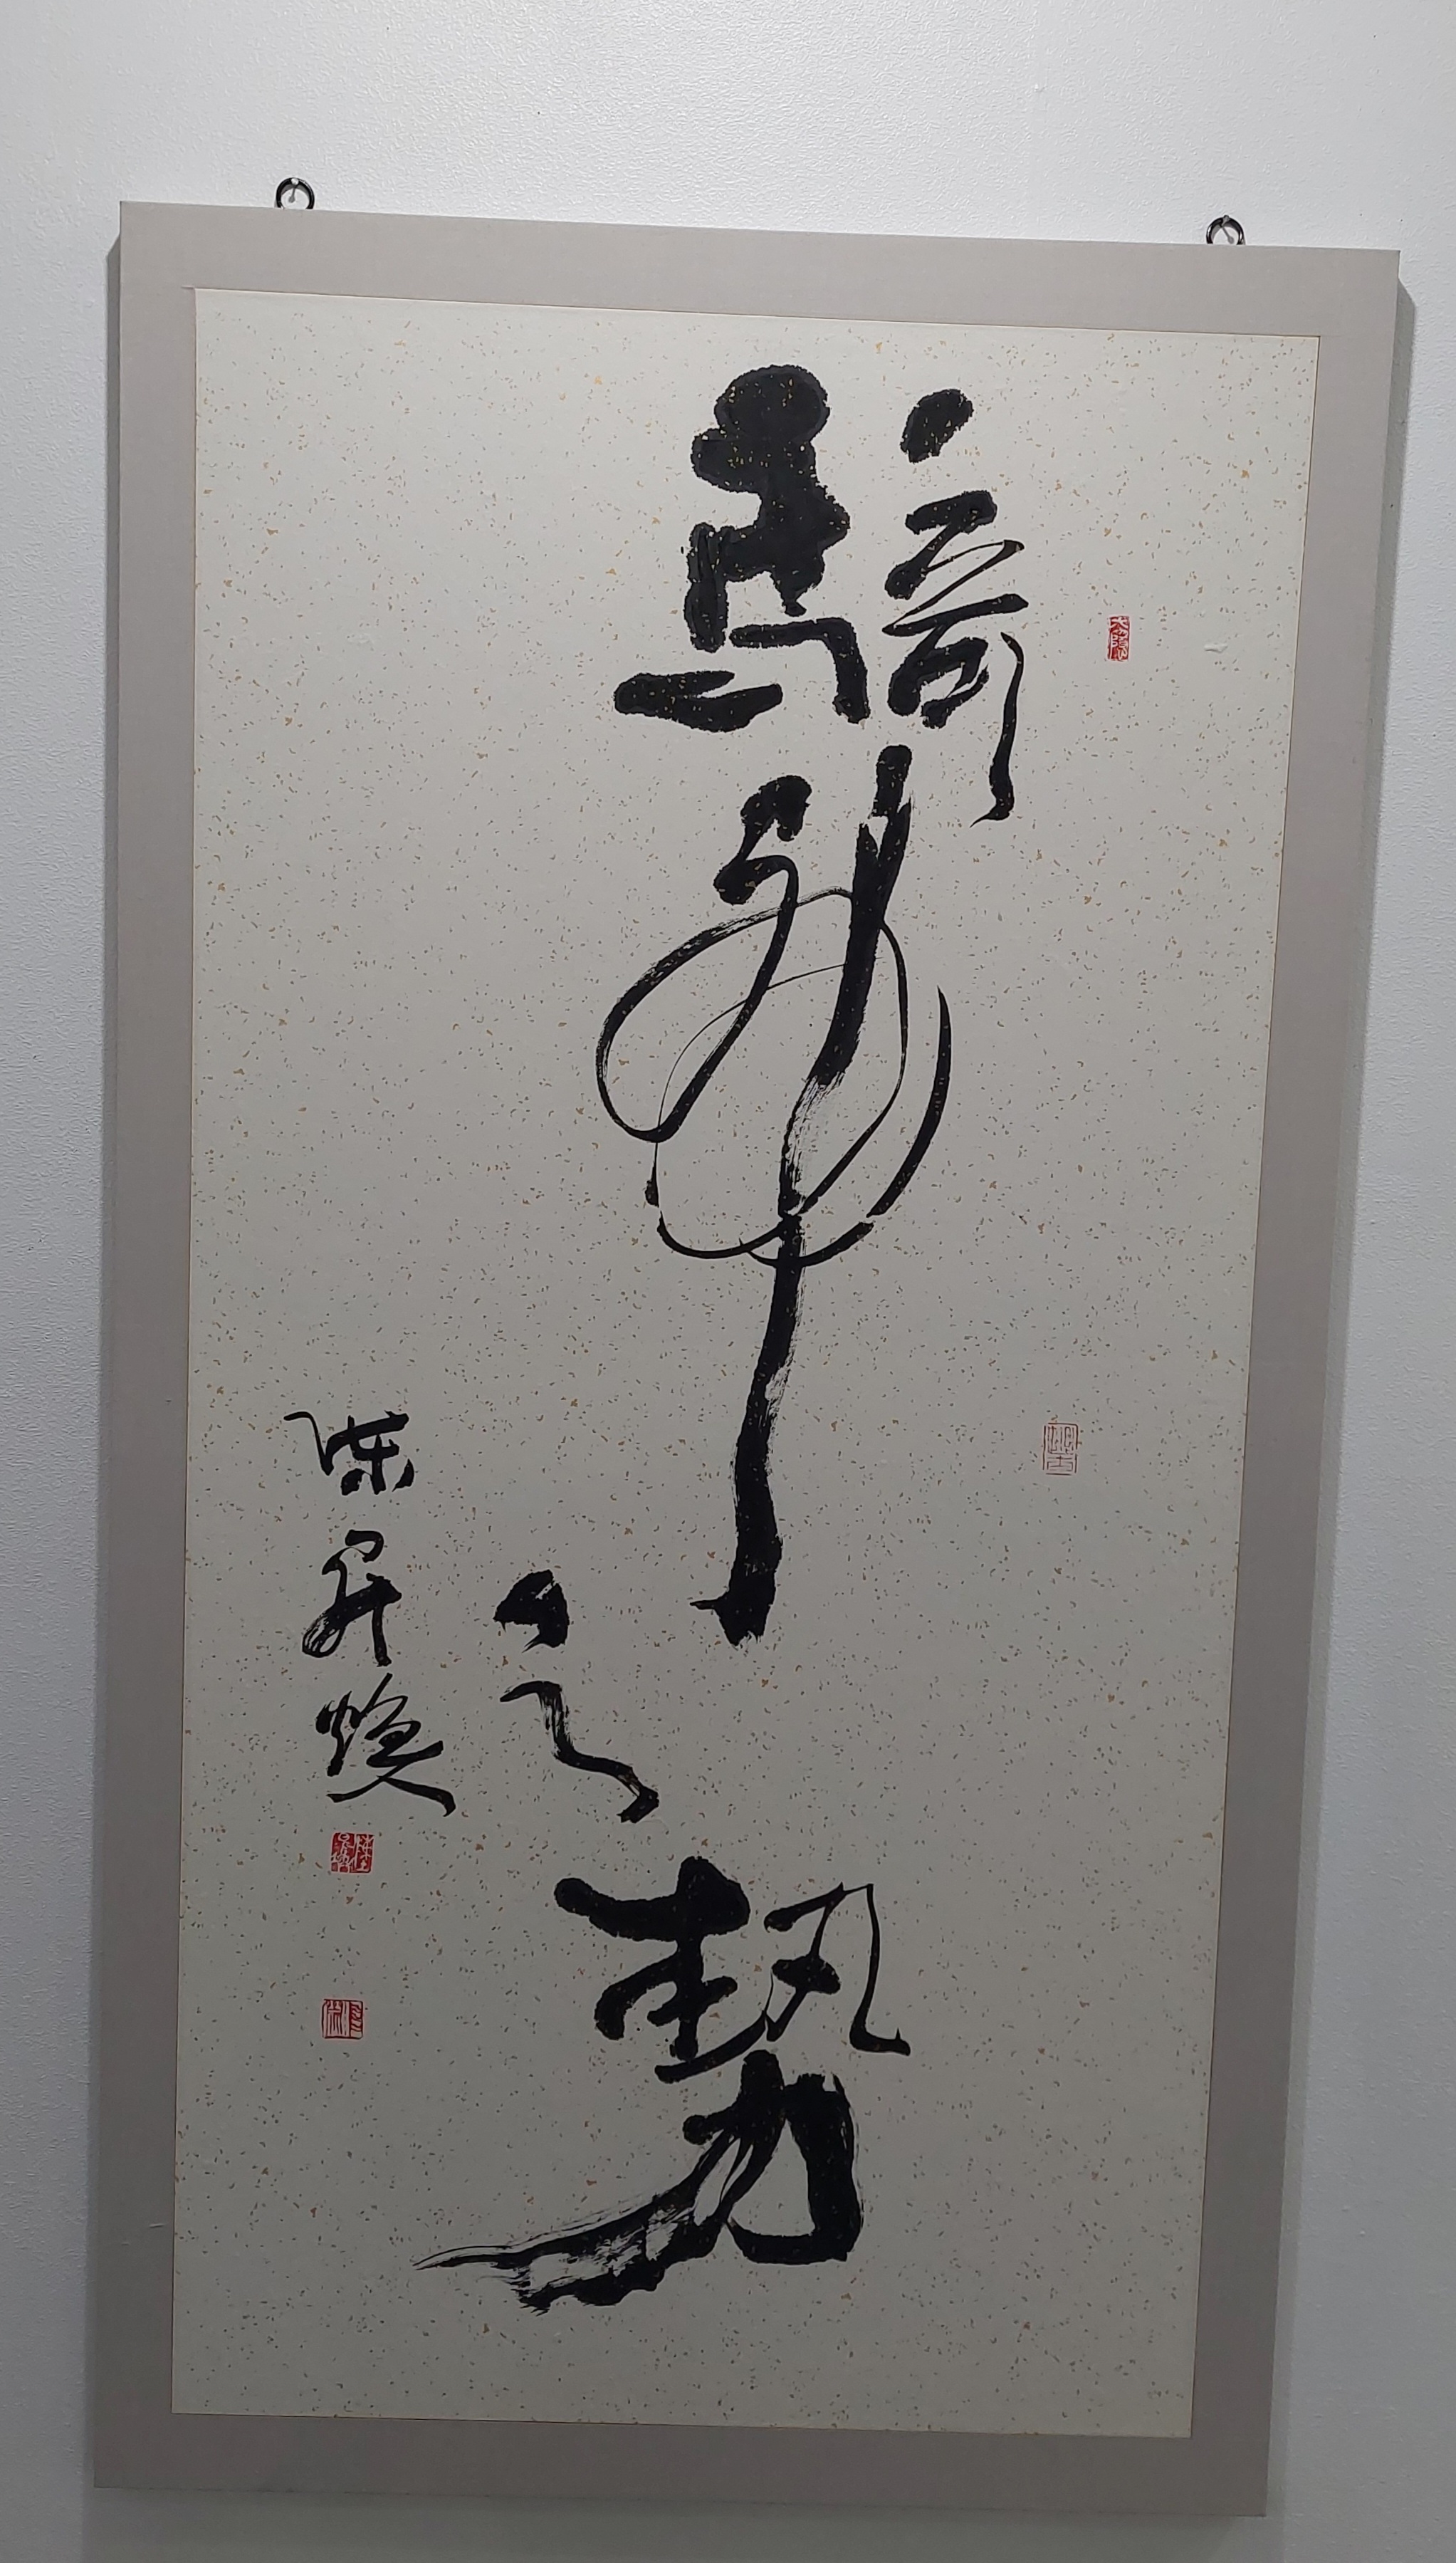 騎虎之勢
陳昇煥